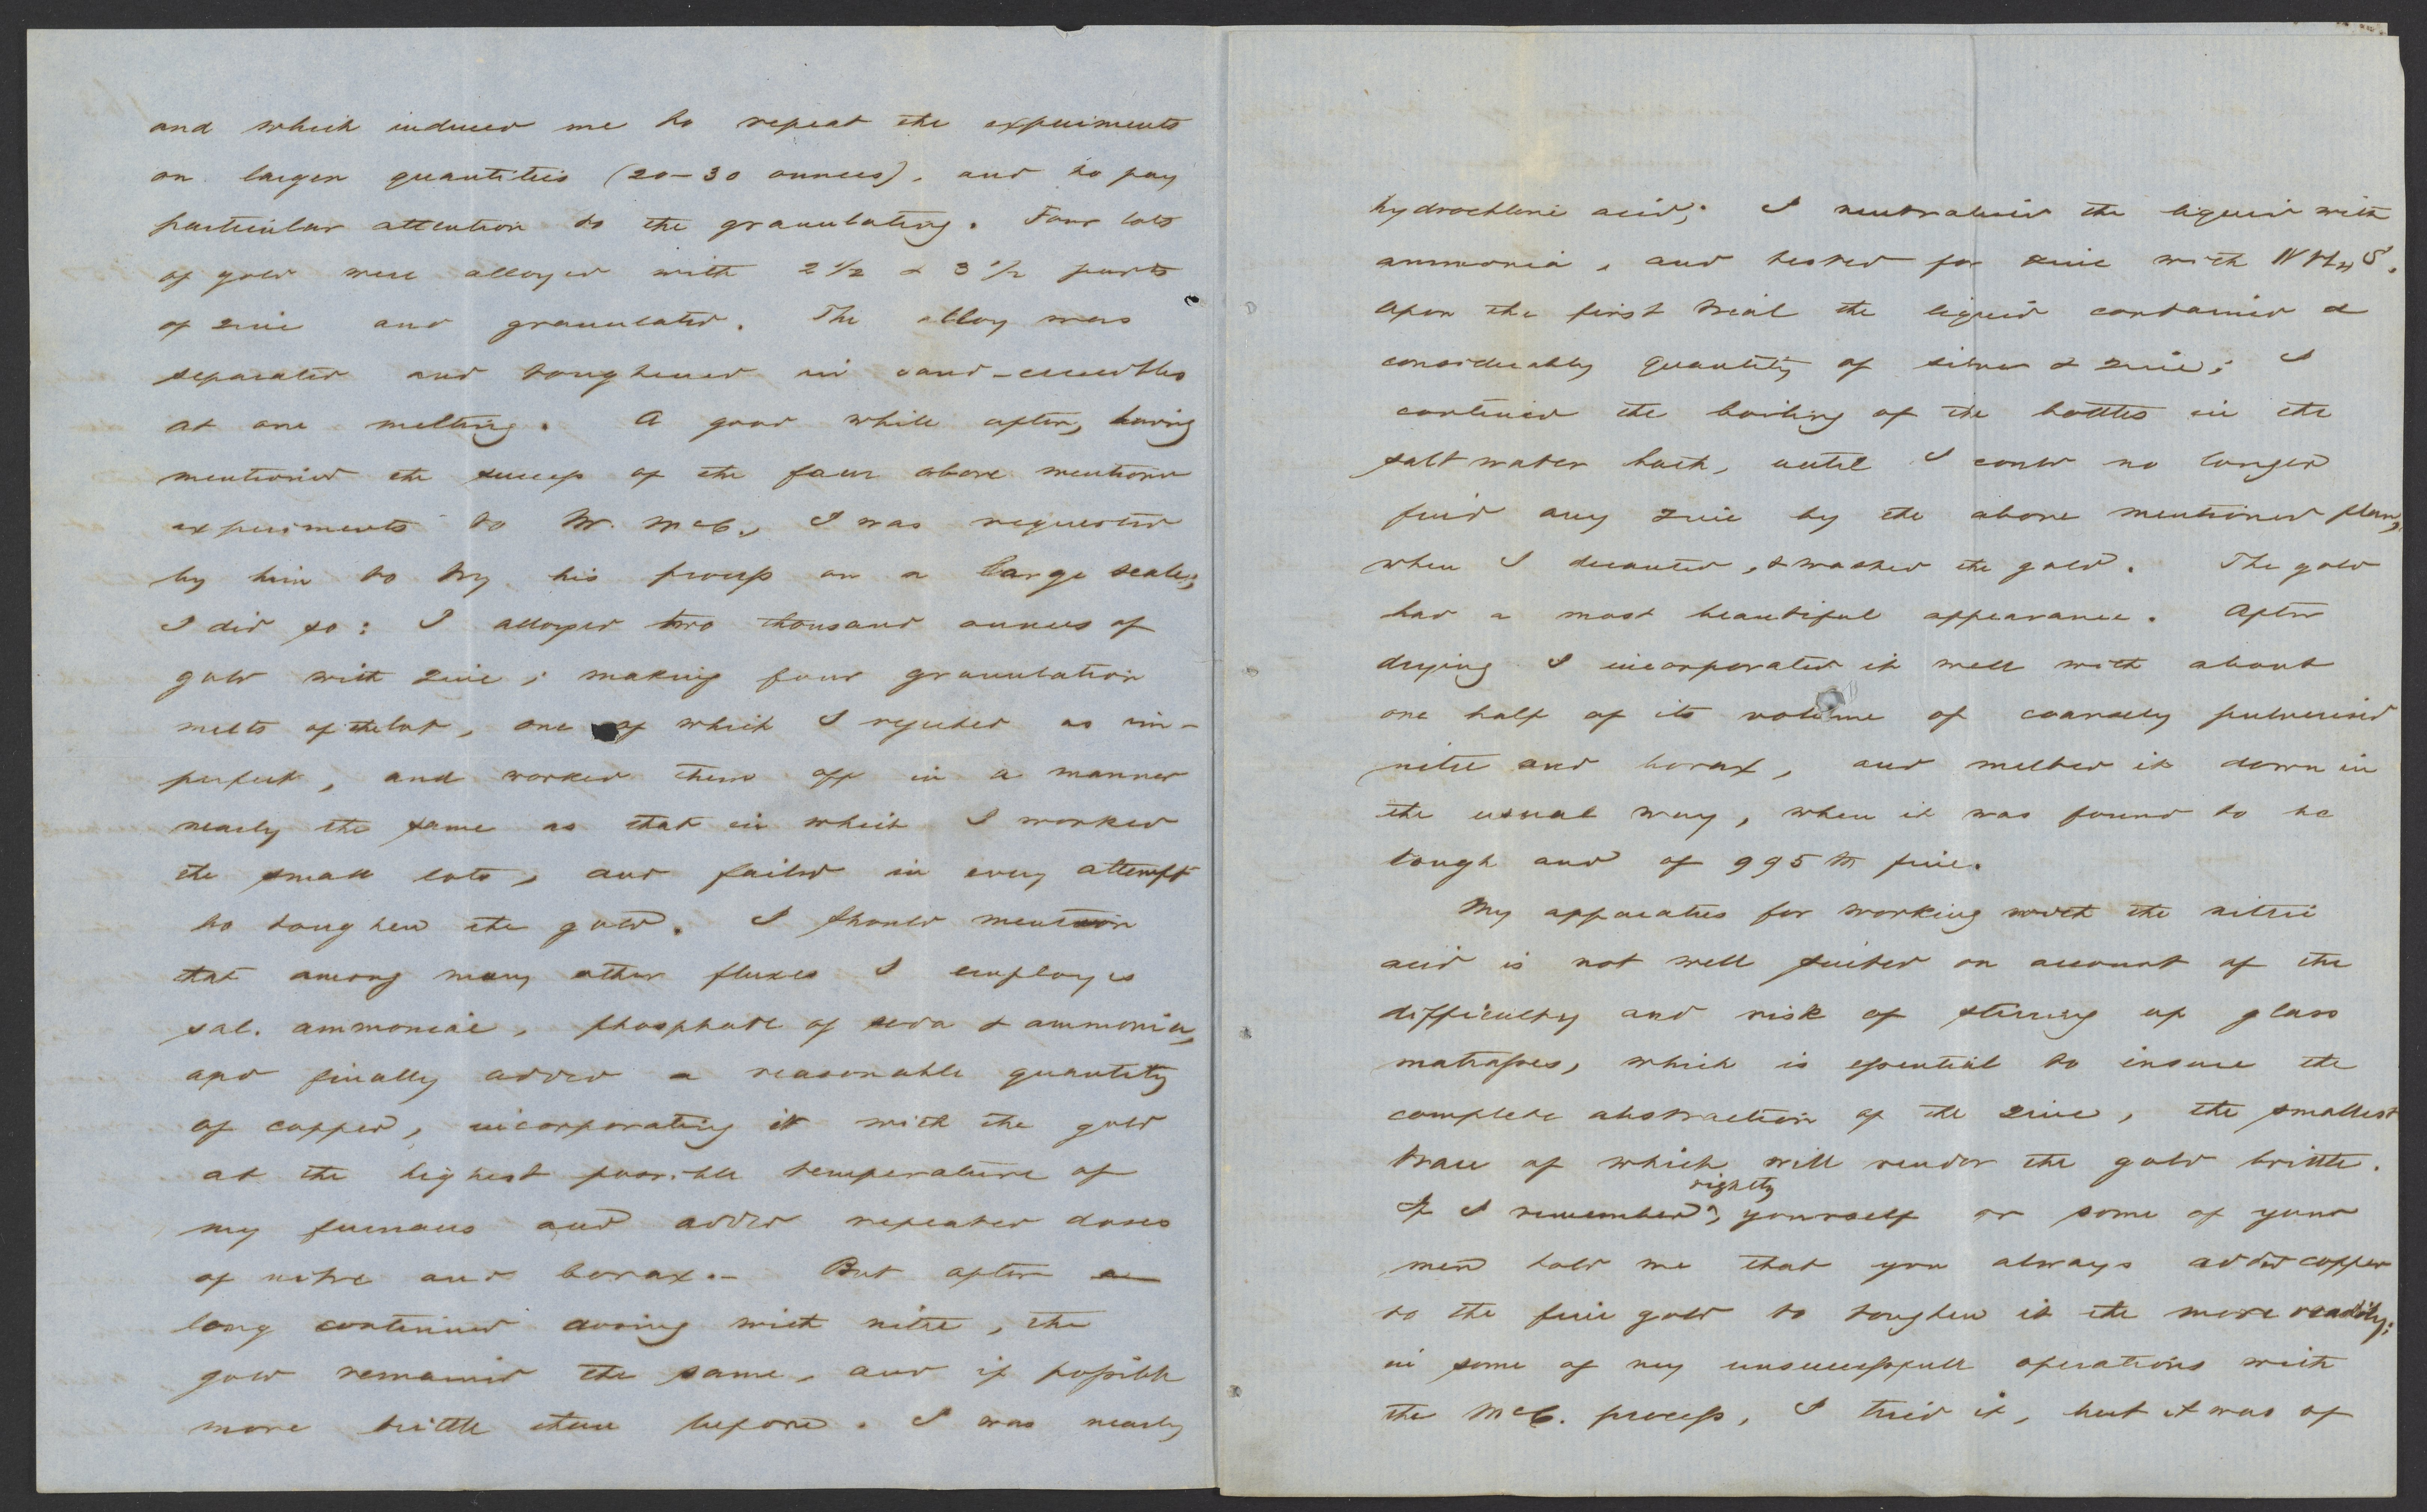 and which induced me to repeat the experiments
on larger quantities (20-30 ounces), and to pay
particular attention to the granulating. Four lots
of gold were alloyed with 2 1/2 & 3 1/2 parts
of zinc and granulated. The alloy was
separated and toughened in sand-crucibles
at one melting. A good while after, having
mentioned the success of the four above mentione
experiments to Mr. McC., I was requested
by him to try his process on a large scale;
I did so: I alloyed two thousand ounces of
gold with zinc; making four granulation
melts of the lot, one of which I rejected as im-
perfect, and worked them off in a manner
nearly the same as that in which I worked
the small lots, and failed in every attempt
to toughen the gold. I should mention
that among many other fluxes I employed
sal. ammoniac, phosphate of soda & ammonia,
and finally added a reasonable quantity
of copper, incorporating it with the gold
at the highest possible temperature of
my furnaces and added repeated doses
of nitre and borax.- But after a
long continued dosing with nitre, the
gold remained the same, and if possible
more brittle than before. I was nearly
hydrochloric acid; I neutralised the liquid with
ammonia, and tested for zinc with NH4S.
Upon the first trial the liquid contained a
considerably quantity of silver & zinc; I
continued the boiling of the bottles in the
salt water bath, until I could no longer
find any zinc by the above mentioned plan,
when I decanted, & washed the gold. The gold
had a most beautiful appearance. After
drying I incorporated it well with about
one half of its volume of coarsely pulverised
nitre and borax, and melted it down in
the usual way, when it was found to be
tough and of 995 M fine.
My apparatus for working with the nitric
acid is not well suited on account of the
difficulty and risk of stirring up glass
matrasses, which is essential to insure the
complete abstraction of the zinc, the smallest
trace of which will render the gold brittle.
If I remembered rightly, yourself or some of your
men told me that you always added copper
to the fine gold to toughen it the more readily;
in some of my unsuccessfull operations with
the McC. process, I tried it, but it was of